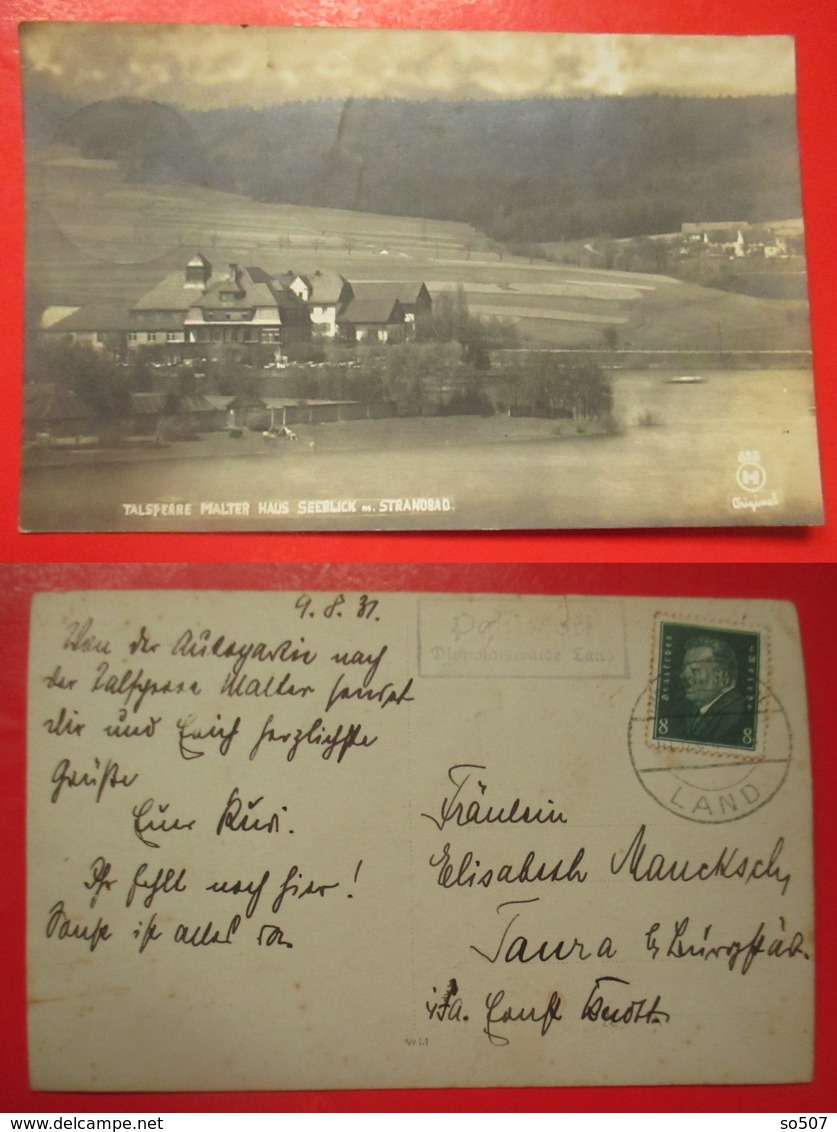 TALSPERRE MALTER HAUS SEEBLICK m. STRANDBAD
698
H
Original
9.8.31.
Von der Autopartie nach
der Talsperre Malter sendet
Dir und Erich herzlichste
Grüße
Euer Rudi.
Ihr fehlt noch hier!
Sonst ist alles da.
Dippoldiswalde Land
Deutsches Reich
8 8
LAND
Fräulein
Elisabeth Maucksch,
Taura b/Burgstädt.
i/Fa. Ernst
WM
so507